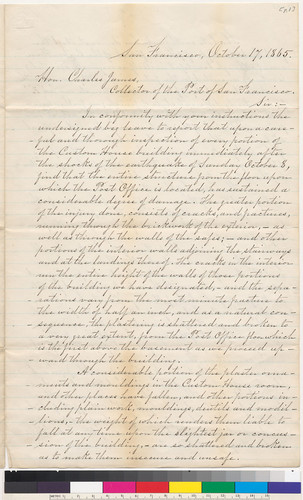 San Francisco, October 17, 1865.
Hon. Charles James,
Collector of the Port of San Francisco.
Sir:—
In conformity with your instructions the
undersigned beg leave to report that upon a care-
ful and thorough inspection of every portion of
the Custom House building immediately after
the shocks of the earthquake of Sunday October 8,
find that the entire structure from the floor upon
which the Post Office is located, has sustained a
considerable degree of damage. The greater portion
of the injury done, consists of cracks, and fractures,
running through the brickwork of the exterior,— as
well as through the walls of the safes; — and other
portions of the interior walls adjoining the stairways
and at the landings thereof. The cracks in the interior
run the entire height of the walls of those portions
of the building we have designated,— and the sepa-
rations vary from the most minute fracture to
the width of half an inch, and as a natural con-
sequence, the plastering is shattered and broken to
a very great extent, from the Post Office floor which
is the first above the basement as we proceed up-
ward through the building.
A considerable portion of the plaster orna-
ments and mouldings in the Custom House room,
and other places have fallen, and other portions in-
cluding plain work, mouldings, dentils and modil-
lions, the weight of which renders them liable to
fall at any time upon the slightest jar or concus-
sion of the building, are so shattered and broken
as to make them insecure and unsafe.